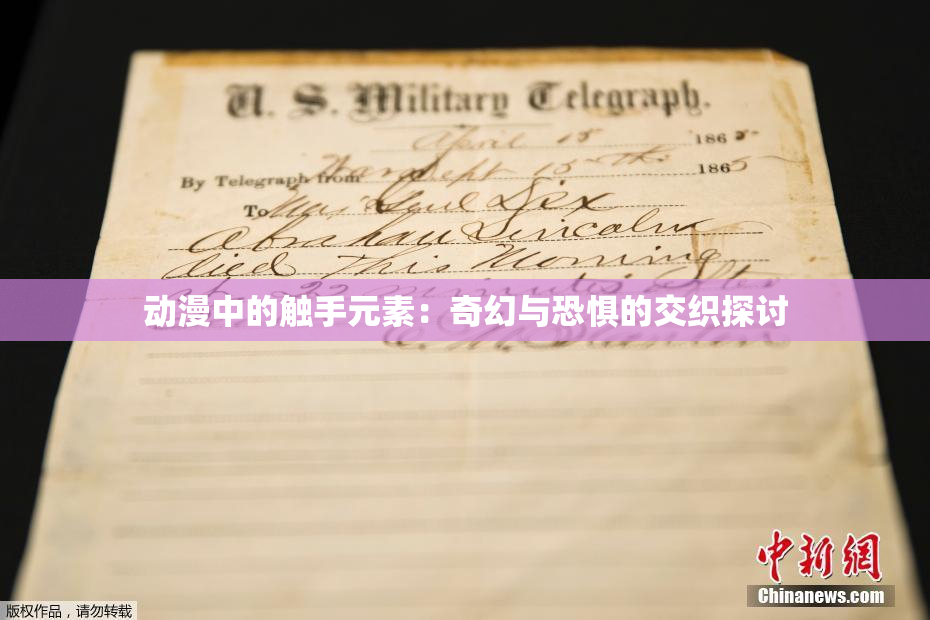 U. S. Military Telegraph.
April 15 1865
By Telegraph from War Dept 15th 1865
To Maj Genl Dix
Abraham Lincoln
died This Morning
at 22 minutes after
动漫中的触手元素：奇幻与恐惧的交织探讨
E. M. Stanton
中新网
Chinanews.com
版权作品，请勿转载